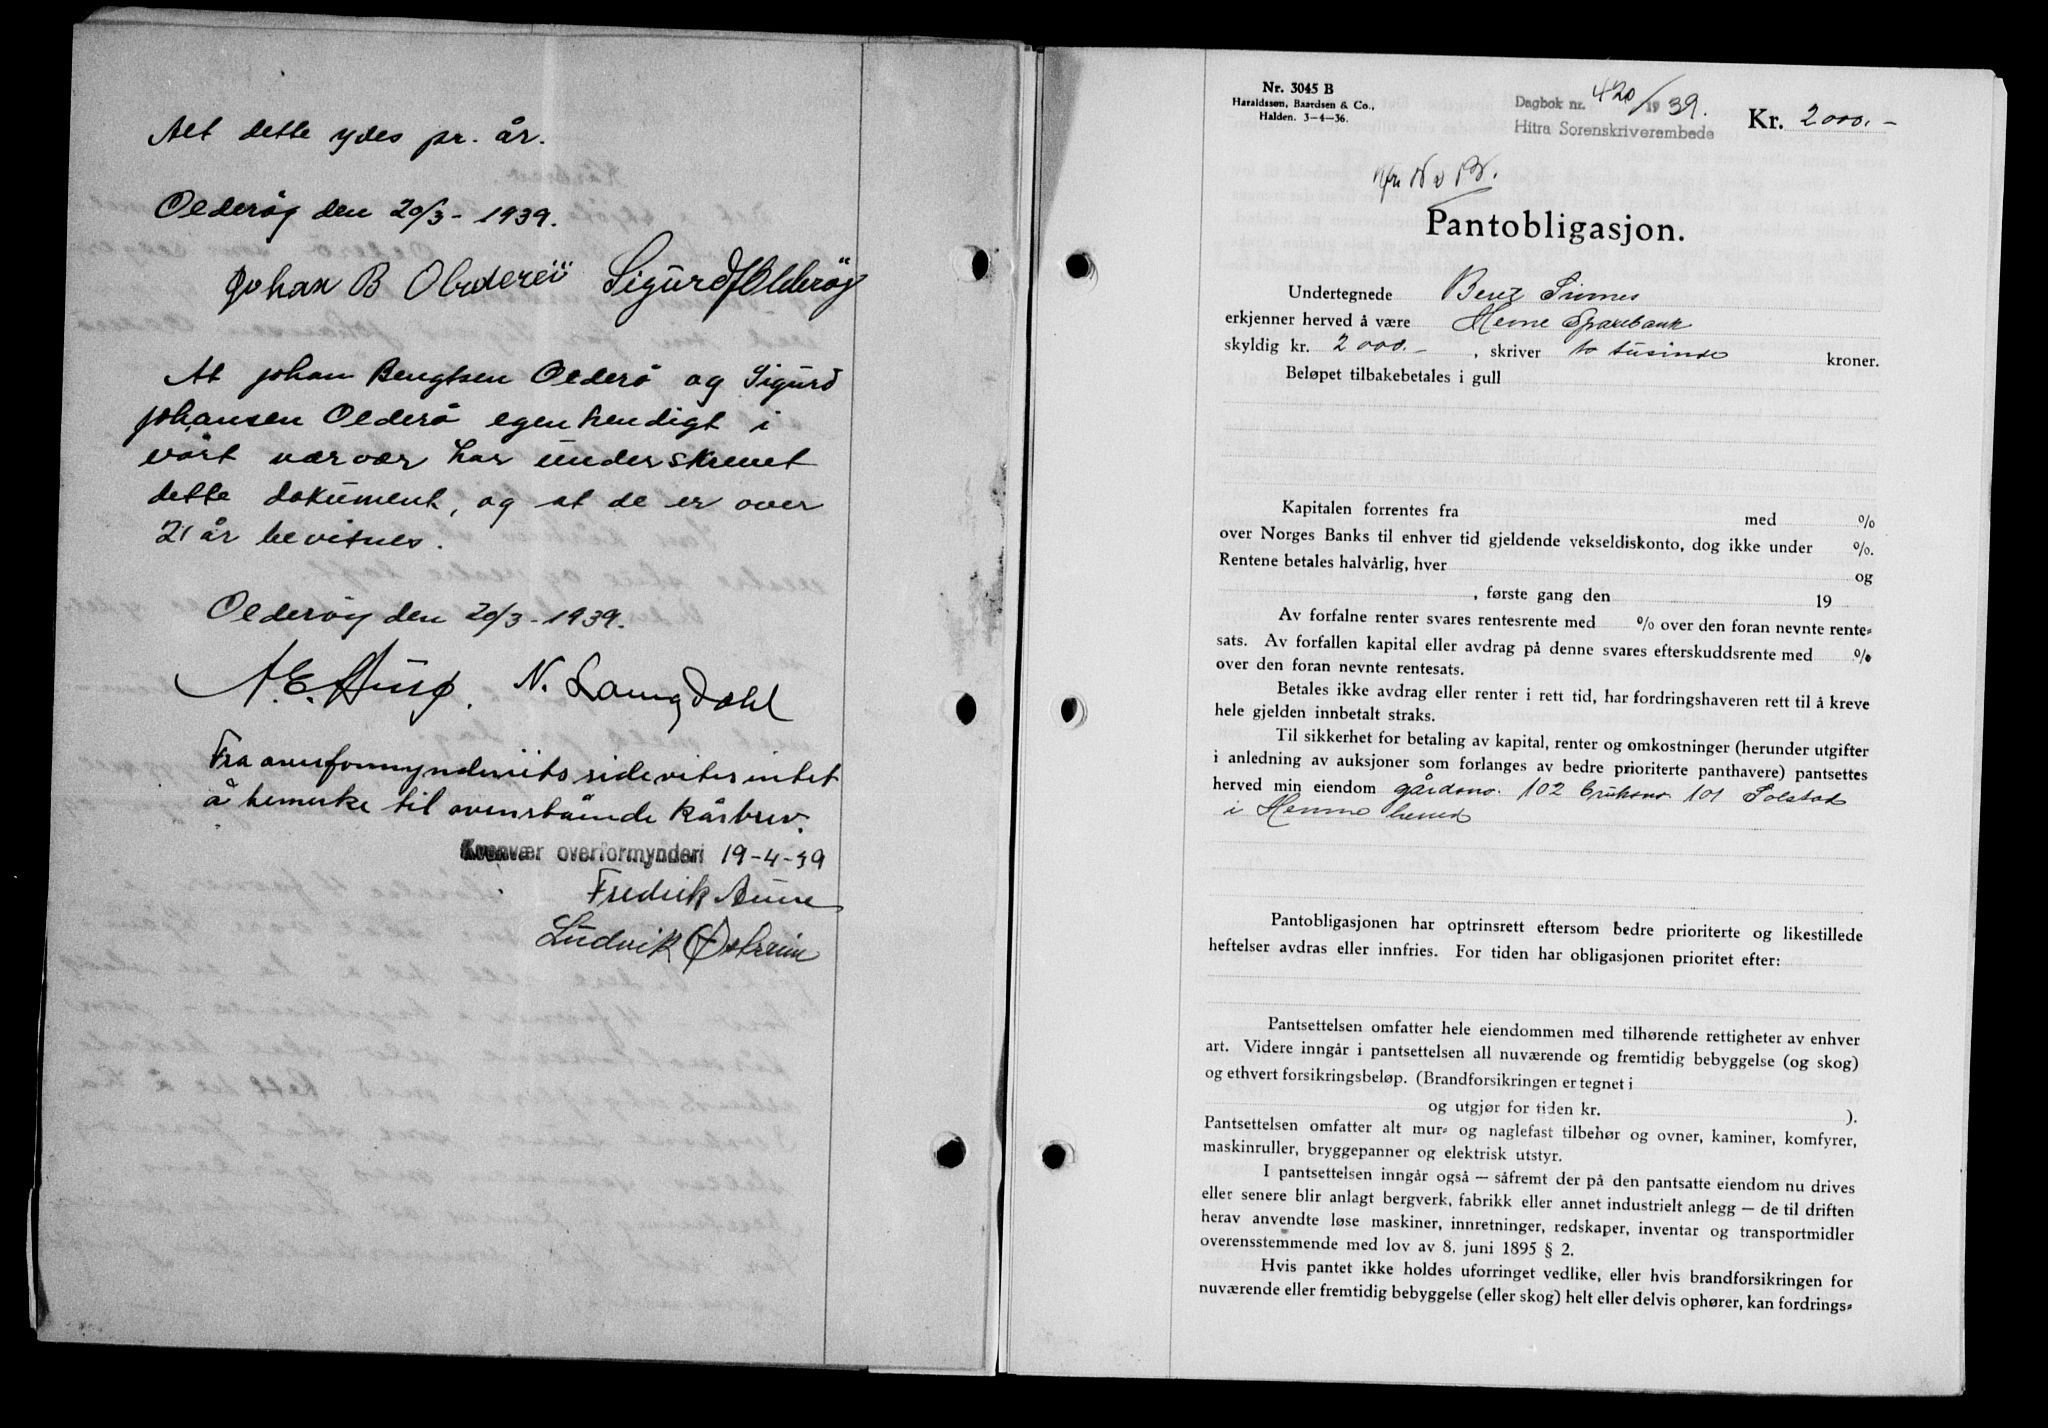 Alt dette ydes pr. år.
Olderøy den 20/3 - 1939.
Johan B Olderöi Sigurd J Olderöy
At Johan Bengtsen Olderö og Sigurd
Johansen Olderö egenhendigt i
vårt nærvær har underskrevet
dette dokument, og at de er over
21 år bevitnes.
Olderöy den 20/3 - 1939.
A. E. N. Langdahl
Fra overformynderiets side vites intet
å bemerke til ovenstående kårbrev.
Kvenvær overformynderi 19-4-39
Fredrik Aune
Ludvik
Nr. 3045 B
Haraldssøn, Baardsen & Co.,
Halden. 3-4-36.
Dagbok nr. 420/1939.
Hitra Sorenskriverembede
Kr. 2000.-
Pantobligasjon.
Undertegnede
erkjenner herved å være Hemne Sparebank
skyldig kr. 2000.- , skriver to tusinde kroner.
Beløpet tilbakebetales i gull
Kapitalen forrentes fra med %
over Norges Banks til enhver tid gjeldende vekseldiskonto, dog ikke under %.
Rentene betales halvårlig, hver og
, første gang den 19
Av forfalne renter svares rentesrente med % over den foran nevnte rente-
sats. Av forfallen kapital eller avdrag på denne svares efterskuddsrente med %
over den foran nevnte rentesats.
Betales ikke avdrag eller renter i rett tid, har fordringshaveren rett til å kreve
hele gjelden innbetalt straks.
Til sikkerhet for betaling av kapital, renter og omkostninger (herunder utgifter
i anledning av auksjoner som forlanges av bedre prioriterte panthavere) pantsettes
herved min eiendom gårdsno. 102 bruksno. 101 Solstad
i Hemne herred
Pantobligasjonen har optrinsrett eftersom bedre prioriterte og likestillede
heftelser avdras eller innfries. For tiden har obligasjonen prioritet efter:
Pantsettelsen omfatter hele eiendommen med tilhørende rettigheter av enhver
art. Videre inngår i pantsettelsen all nuværende og fremtidig bebyggelse (og skog)
og ethvert forsikringsbeløp. (Brandforsikringen er tegnet i
og utgjør for tiden kr. ).
Pantsettelsen omfatter alt mur- og naglefast tilbehør og ovner, kaminer, komfyrer,
maskinruller, bryggepanner og elektrisk utstyr.
I pantsettelsen inngår også — såfremt der på den pantsatte eiendom nu drives
eller senere blir anlagt bergverk, fabrikk eller annet industrielt anlegg — de til driften
herav anvendte løse maskiner, innretninger, redskaper, inventar og transportmidler
overensstemmende med lov av 8. juni 1895 § 2.
Hvis pantet ikke holdes uforringet vedlike, eller hvis brandforsikringen for
nuværende eller fremtidig bebyggelse (eller skog) helt eller delvis ophører, kan fordrings-